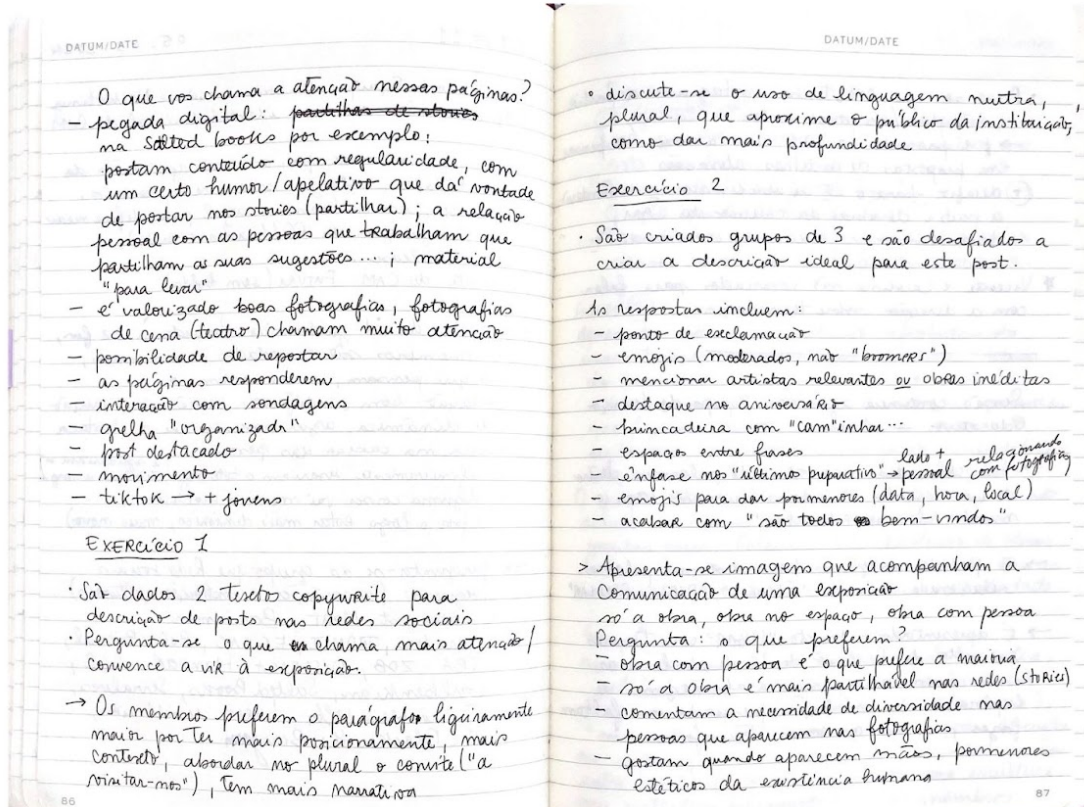 DATUM/DATE
O que vos chama a atenção nessas páginas?
- pegada digital: partilhas de stories
na Salted books por exemplo:
postam conteúdo com regularidade, com
um certo humor/apelativo que dá vontade
de postar nos stories (partilhar); a relação
pessoal com as pessoas que trabalham que
partilham as suas sugestões...; material
"para levar"
- é valorizado boas fotografias, fotografias
de cena (teatro) chamam muito atenção
- possibilidade de repostar
- as páginas responderem
- interação com sondagens
- grelha "organizada"
- post destacado
- movimento
- tiktok → + jovens
EXERCÍCIO 1
· São dados 2 texto copywrite para
descrição de posts nas redes sociais
· Pergunta-se o que chama mais atenção/
convence a vir à exposição.
→ Os membros preferem o parágrafo ligeiramente
maior por ter mais posicionamente, mais
contexto, abordar no plural o convite ("a
visitar-nos"), tem mais narrativa
86
DATUM/DATE
• discute-se o uso de linguagem neutra,
plural, que aproxime o público da instituição,
como dar mais profundidade
Exercício 2
· São criados grupos de 3 e são desafiados a
criar a descrição ideal para este post.
As respostas incluem:
- ponto de exclamação
- emojis (moderados, não "boomers")
- mencionar artistas relevantes ou obras inéditas
- destaque no aniversário
- brincadeira com "cam"inhar...
- espaços entre frases
- ênfase nos "último preparativo" → lado + pessoal relacionando com fotografia
- emojis para dar pormenores (data, hora, local)
- acabar com "são todes bem-vindos"
> Apresenta-se imagens que acompanham a
comunicação de uma exposição
só a obra, obra no espaço, obra com pessoa
Pergunta: o que preferem?
- obra com pessoa é o que prefere a maioria
- só a obra é mais partilhável nas redes (stories)
- comentam a necessidade de diversidade nas
pessoas que aparecem nas fotografias
- gostam quando aparecem mãos, pormenores
estéticos da existência humana
87